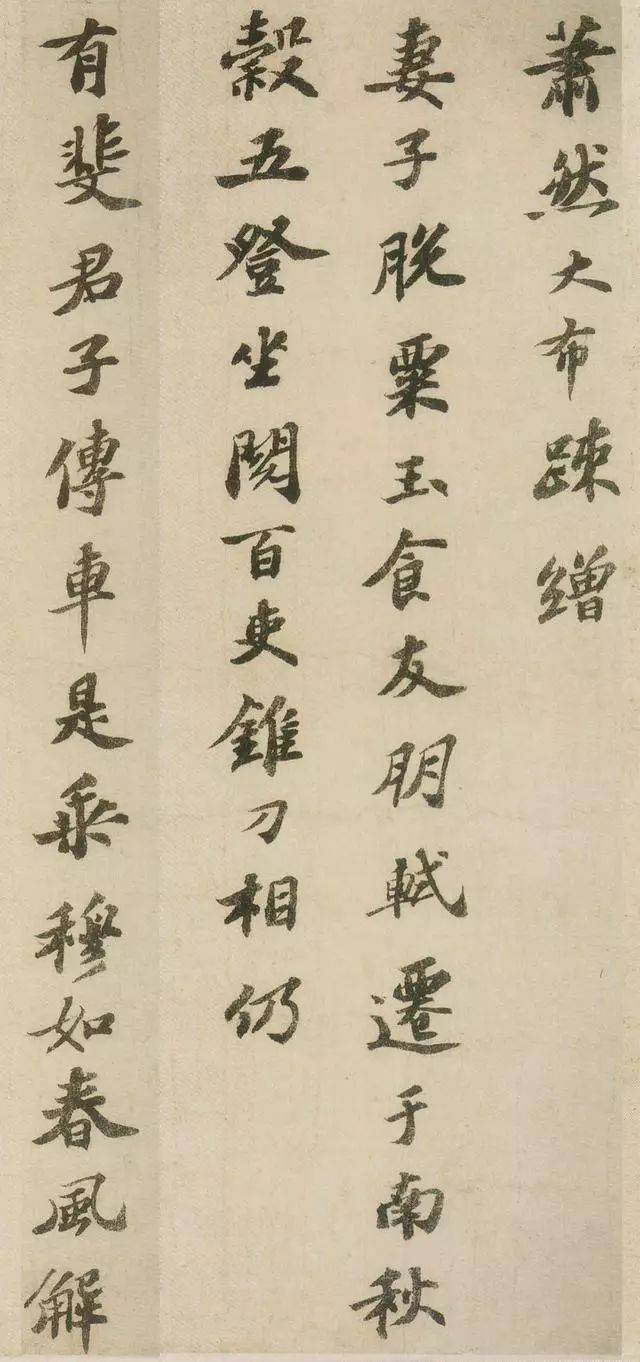 蕭然大布疎繒
妻子脫粟玉食友朋軾遷于南秋
穀五登坐閱百吏錐刀相仍
有斐君子傳車是乘穆如春風解